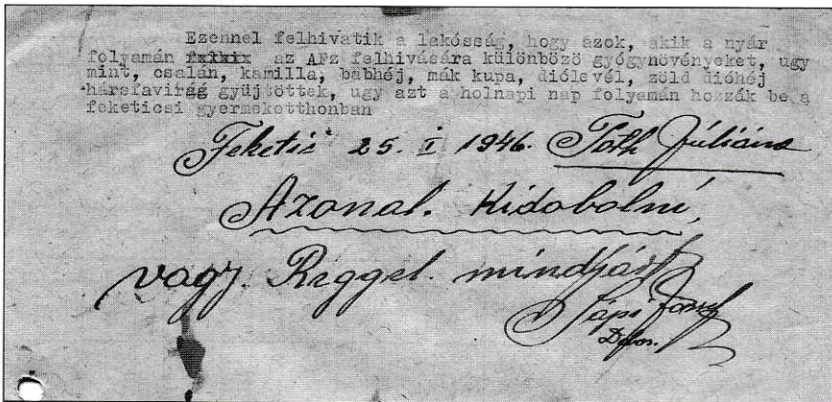 Ezennel felhivatik a lakósság, hogy azok, akik a nyár
folyamán az AFz felhivására különböző gyógynövényeket, ugy
mint, csalán, kamilla, babhéj, mák kupa, diólevél, zöld dióhéj
hársfavirág gyüjtöttek, ugy azt a holnapi nap folyamán hozzák be a
feketicsi gyermekotthonban
Feketić 25. I 1946. Tóth Júliána
Azonal. Kidobolni,
vagy. Reggel. mindjárt
Sápi József